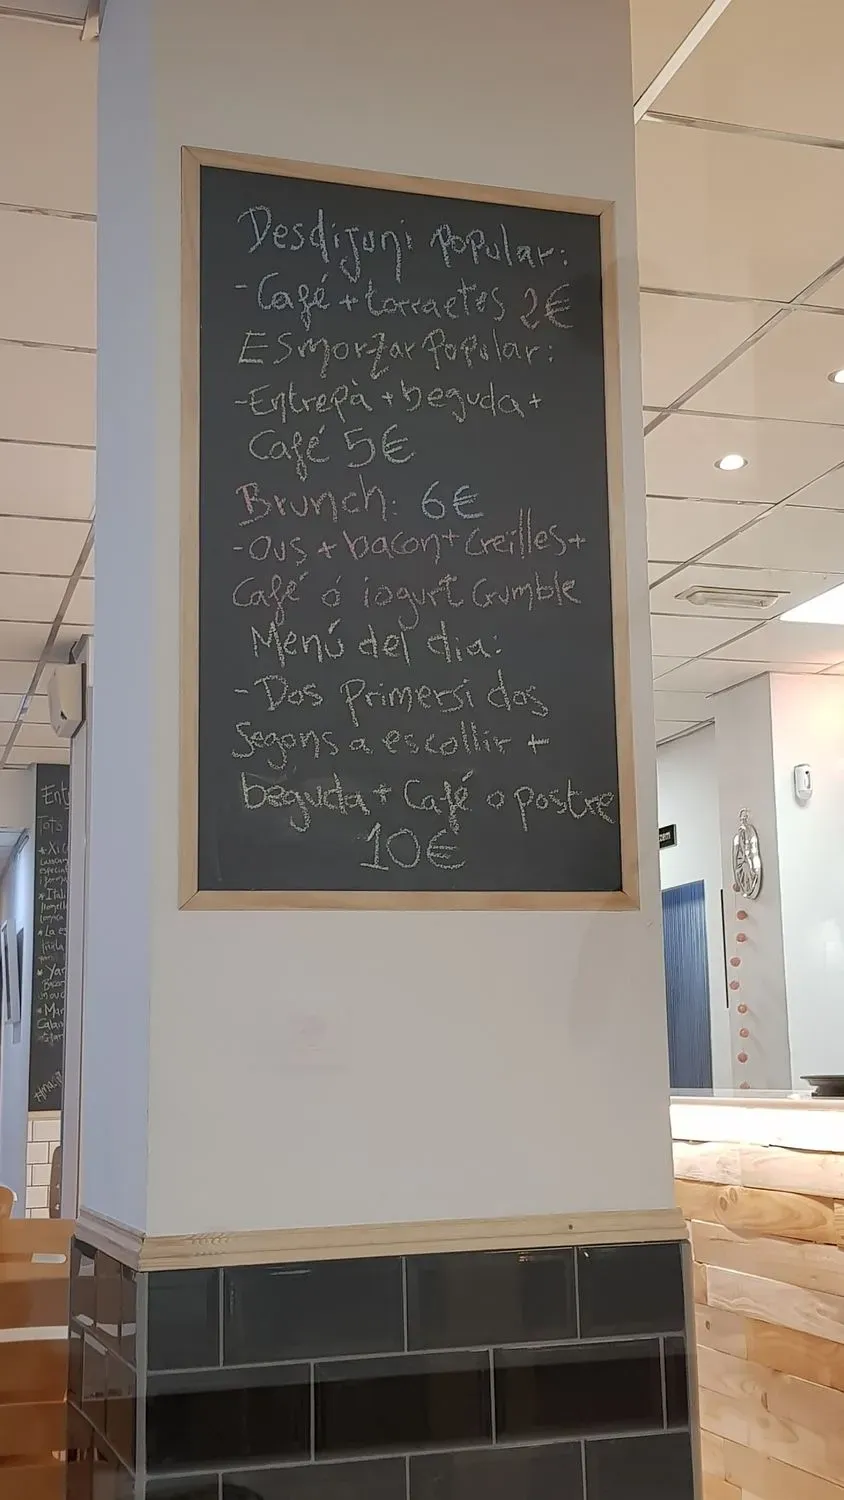 Desdijuni popular:
- Café + torraetes 2€
Esmorzar Popular:
- Entrepà + beguda +
Café 5€
Brunch: 6€
- Ous + bacon + Creilles +
Café ó iogurt Crumble
Menú del dia:
- Dos primersi dos
Segons a escollir +
beguda + Café o postre
10€
Ent
Tots